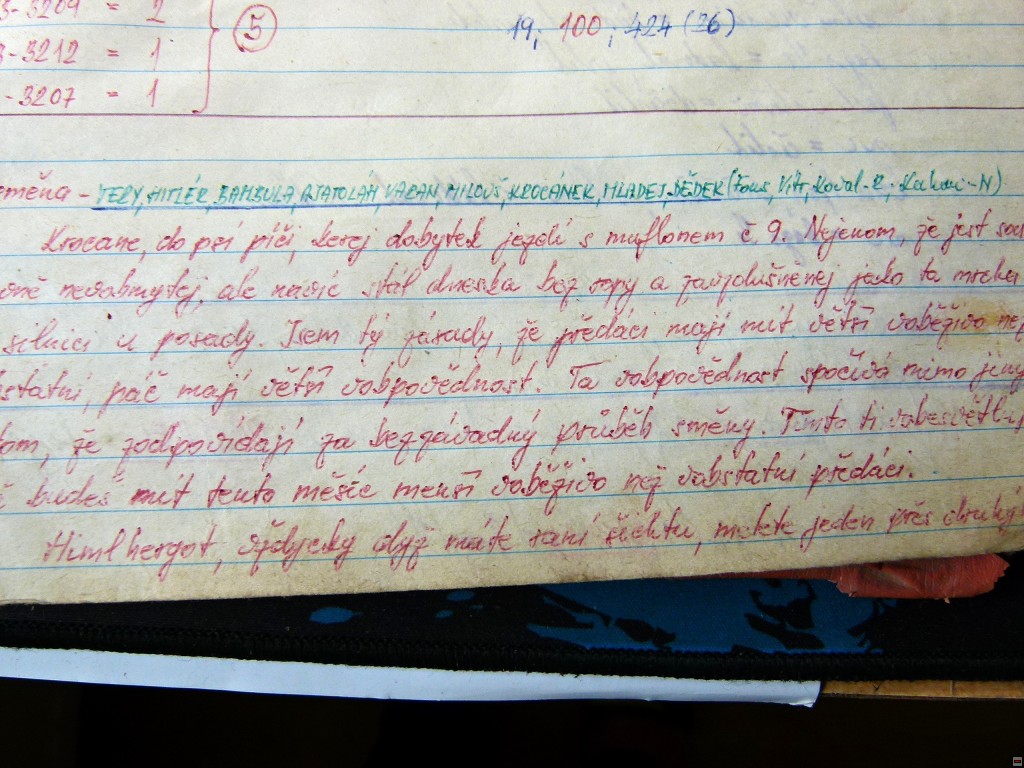 3-3209 = 2
19; 100; 424 (26)
5
3-3212 = 1
-3207 = 1
směna - TERY, HITLÉR, BAMBULA, AJATOLÁH, VARAN, MILOUŠ, KROCÁNEK, MLADEJ, DĚDEK (Fous, Vít, Koval-R,
Krocane, do psí píči, kerej dobytek jezdí s muflonem č. 9. Nejenom, že jest
nevobmytej, ale navíc stál dneska bez ropy a zavzdušněnej jako ta mrcha
silnici u posady. Jsem tý zásady, že předáci mají mít větší voběživo
statní, páč mají větší vobpovědnost. Ta vobpovědnost spočívá mimo
tom, že zodpovídají za bezzávadný průběh směny. Tímto ti
budeš mít tento měsíc menší voběživo než vobstatní předáci.
Himlhergot, vždycky dyž máte raní šichtu, melete jeden přes